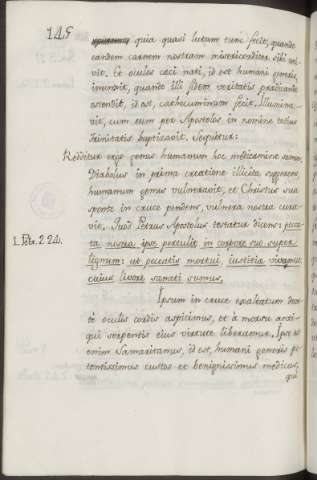 145
quia quasi lutum tunc fecit, quando
eandem carnem nostram misericorditer sibi uni-
vit. Et oculos caci nati, id est humani generis,
inunxit, quando illi fidem veritatis prædicando
ostendit, id est, cathecuminum fecit. Illumina-
vit, cum eum per Apostolos in nomine totius
Trinitatis baptisavit. Sequitur:
Redditur ergo genus humanum hoc medicamine sanum,
Diabolus in prima creatione illicita suggerens
humanum genus vulneravit, et Christus sua
sponte in cruce pendens, vulnera nostra cura-
vit. Quod Petrus Apostolus testatur dicens: pecca-
ta nostra ipse pertulit in corpore suo super
1. Petr. 2. 24.
lignum: ut peccatis mortui, iustitia vivamus
cuius livore sanati sumus.
Ipsum in cruce exaltatum devo-
te oculis cordis aspicimus, et à morsu anti-
qui serpentis eius virtute liberamur. Ipse est
enim Samaritanus, id est, humani generis po-
tentissimus custos et benignissimus medicus,
qui